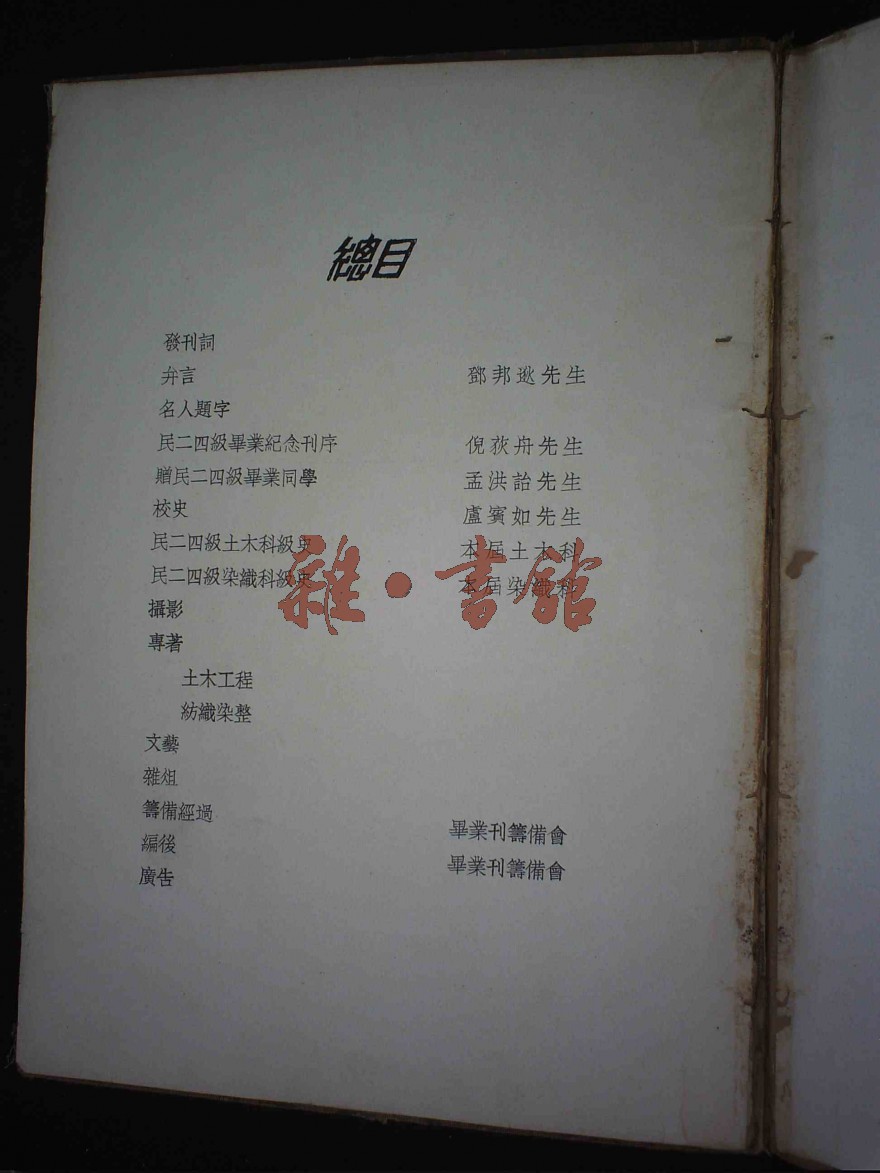 總目
發刊詞
弁言 鄧邦逖先生
名人題字
民二四級畢業紀念刊序 倪荻舟先生
贈民二四級畢業同學 孟洪詒先生
校史 盧賓如先生
民二四級土木科級史 本屆土木科
民二四級染織科級史 本屆染織科
攝影
專著
土木工程
紡織染整
文藝
雜俎
籌備經過 畢業刊籌備會
編後 畢業刊籌備會
廣告
雜·書館